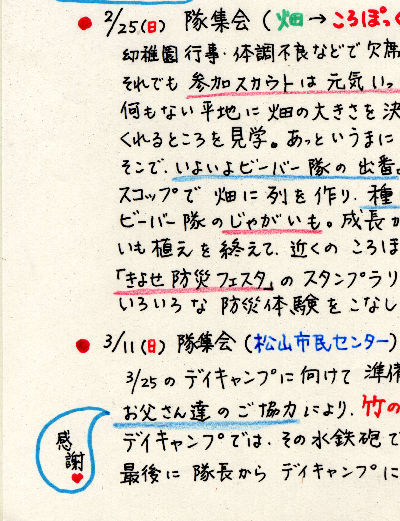 ● 2/25(日) 隊集会 (畑→ころぽっ
幼稚園行事・体調不良などで欠席
それでも 参加スカウトは 元気いっ
何もない平地に 畑の大きさを決
くれるところを見学。あっというまに
そこで、いよいよビーバー隊の出番。
スコップで 畑に列を作り、種
ビーバー隊のじゃがいも。成長か
いも植えを終えて、近くの ころぽ
「きよせ防災フェスタ」の スタンプラリ
いろいろな 防災体験をこなし
● 3/11(日) 隊集会 (松山市民センター)
3/25の デイキャンプに向けて 準備
お父さん達のご協力により、竹の
デイキャンプでは、その水鉄砲で
最後に 隊長から デイキャンプに
感謝♥